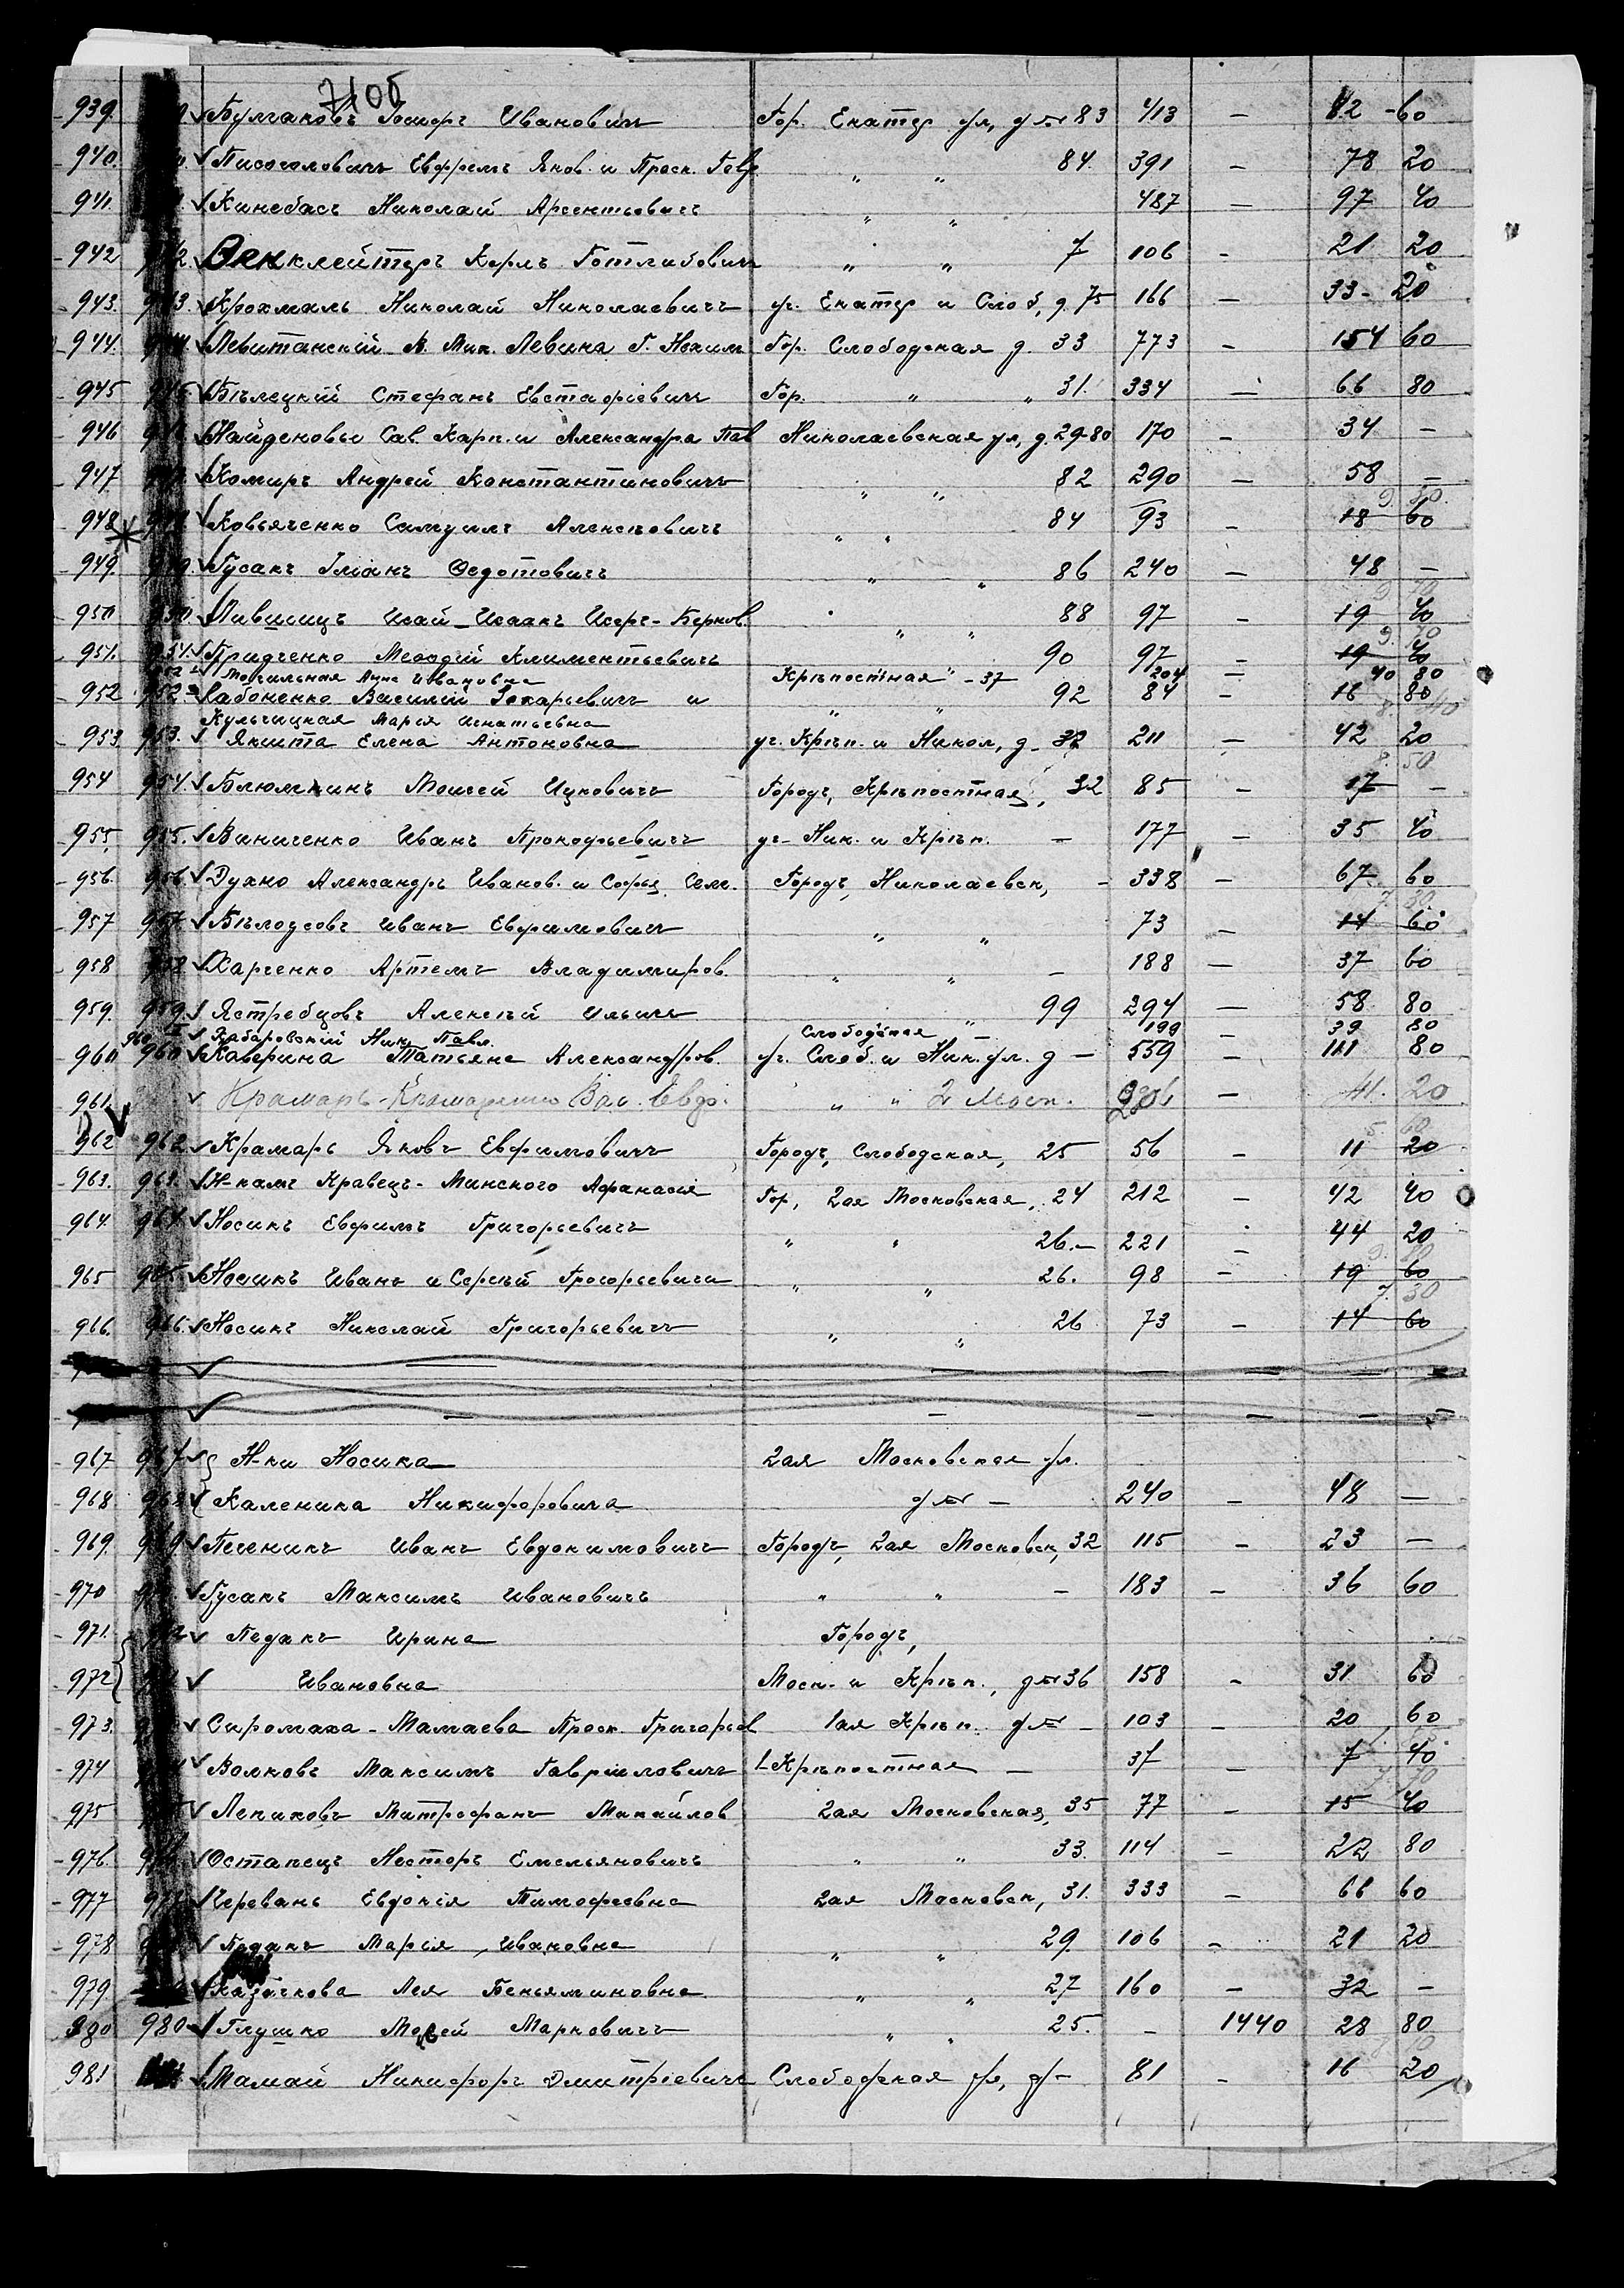 7105
939. Булгаковъ Іосифъ Ивановичъ Гор. Екатер ул, д № 83 413 — 82 - 60
940. Писаголовичъ Ефремъ Яков. и Праск. Гавр " " 84. 391 — 78 20
941. Кинебасъ Николай Арсентьевичъ " " 487 — 97 40
942 942. клейтеръ Карлъ Готлибовичъ " " 7 106 - 21 20
943. 943. Крохмаль Николай Николаевичъ уг. Екатер и Слоб, д 75 166 — 33 - 20
944. Левитанскій Мих. Левина Г. Нохим Гор. Слободская д. 33 773 - 154 60
945 945. Бѣлецкій Стефанъ Евстафіевичъ Гор. " " 31. 334 — 66 80
946 Найденовы Сав. Карп. и Александра Пав Николаевская ул, д. 29-80 170 - 34 —
947. Комиръ Андрей Константиновичъ " " 82 290 — 58 —
948 Ковьяченко Самуилъ Алексѣевичъ " " 84 93 - 18 60
949. Гусакъ Іліанъ Федотовичъ " " 86 240 — 48 —
950 Лившицъ Исай-Исаакъ Исеръ-Берков. " " 88 97 - 19 40
951. 951. Гридченко Меѳодій Климентьевичъ 90 97 — 19 40
Могильная Анна Ивановна Крѣпостная " - 37 204 — 40 80
952 952. Рабоненко Василій Захарьевичъ и " " 92 84 - 16 80
Кульчицкая Марья Игнатьевна
953. 953. Якшта Елена Антоновна уг. Крѣп. и Никол, д - 32 211 — 42 20
954 954. Блюмкинъ Моисей Ицковичъ Городъ, Крѣпостная, 32 85 - 17 -
955. 955. Виниченко Иванъ Прокофьевичъ уг - Ник. и Крѣп. — 177 — 35 40
956. 956. Духно Александръ Иванов. и Софья Сем. Городъ, Николаевск, - 338 — 67 60
957 957. Бѣлоусовъ Иванъ Ефимовичъ " " 73 — 14 60
958 958 Харченко Артемъ Владимиров. " " — 188 — 37 60
959. 959. Ястребцовъ Алексѣй Ильичъ " 99 294 — 58 80
Хабаровскій Ник. Павл. Слободская — 199 — 39 80
960 960 Каверина Татьяна Александров. уг. Слоб. и Ник. ул. д — 559 — 111 80
961. Крамарь-Крамаренко Вас. Евдо. " " 2 Моск. 206 — 41. 20
962 962 Крамарь Яковъ Ефимовичъ Городъ, Слободская, 25 56 — 11 20
963. 963. Н-камъ Кравецъ-Минского Афанасія Гор, 2ая Московская, 24 212 — 42 40
964. 964. Носикъ Ефимъ Григорьевичъ " " 26.— 221 — 44 20
965 965. Носикъ Иванъ и Сергѣй Григорьевичи " " 26. 98 — 19 60
966. 966. Носикъ Николай Григорьевичъ " " 26 73 — 14 60
967 967 Н-ки Носика 2ая Московская ул.
968 968 Каленика Никифоровича д № — 240 — 48 —
969. 969 Печеникъ Иванъ Евдокимовичъ Городъ, 2ая Московск, 32 115 — 23 —
970 Гусакъ Максимъ Ивановичъ " " — 183 — 36 60
971. Педакъ Ирина Городъ,
972 Ивановна Моск. и Крѣп., д № 36 158 - 31 60
973. Сиромаха-Мамаева Праск. Григорьев 1ая Крѣп. д № - 103 - 20 60
974 Волковъ Максимъ Гавриловичъ 1 Крѣпостная — 37 — 7 40
975 Лепиховъ Митрофанъ Михайлов 2ая Московская, 35 77 - 15 40
976. Остапецъ Несторъ Емельяновичъ " " 33. 114 — 22 80
977 Черевань Евдокія Тимофеевна 2ая Московск, 31. 333 — 66 60
978 Педакъ Марія Ивановна " " 29. 106 - 21 20
979 Казачкова Лея Беньяминовна " " 27 160 — 32 -
980 980 Глушко Мосей Марковичъ " " 25. - 1440 28 80
981 Мамай Никифоръ Дмитріевичъ Слободская ул, д - 81 - 16 20